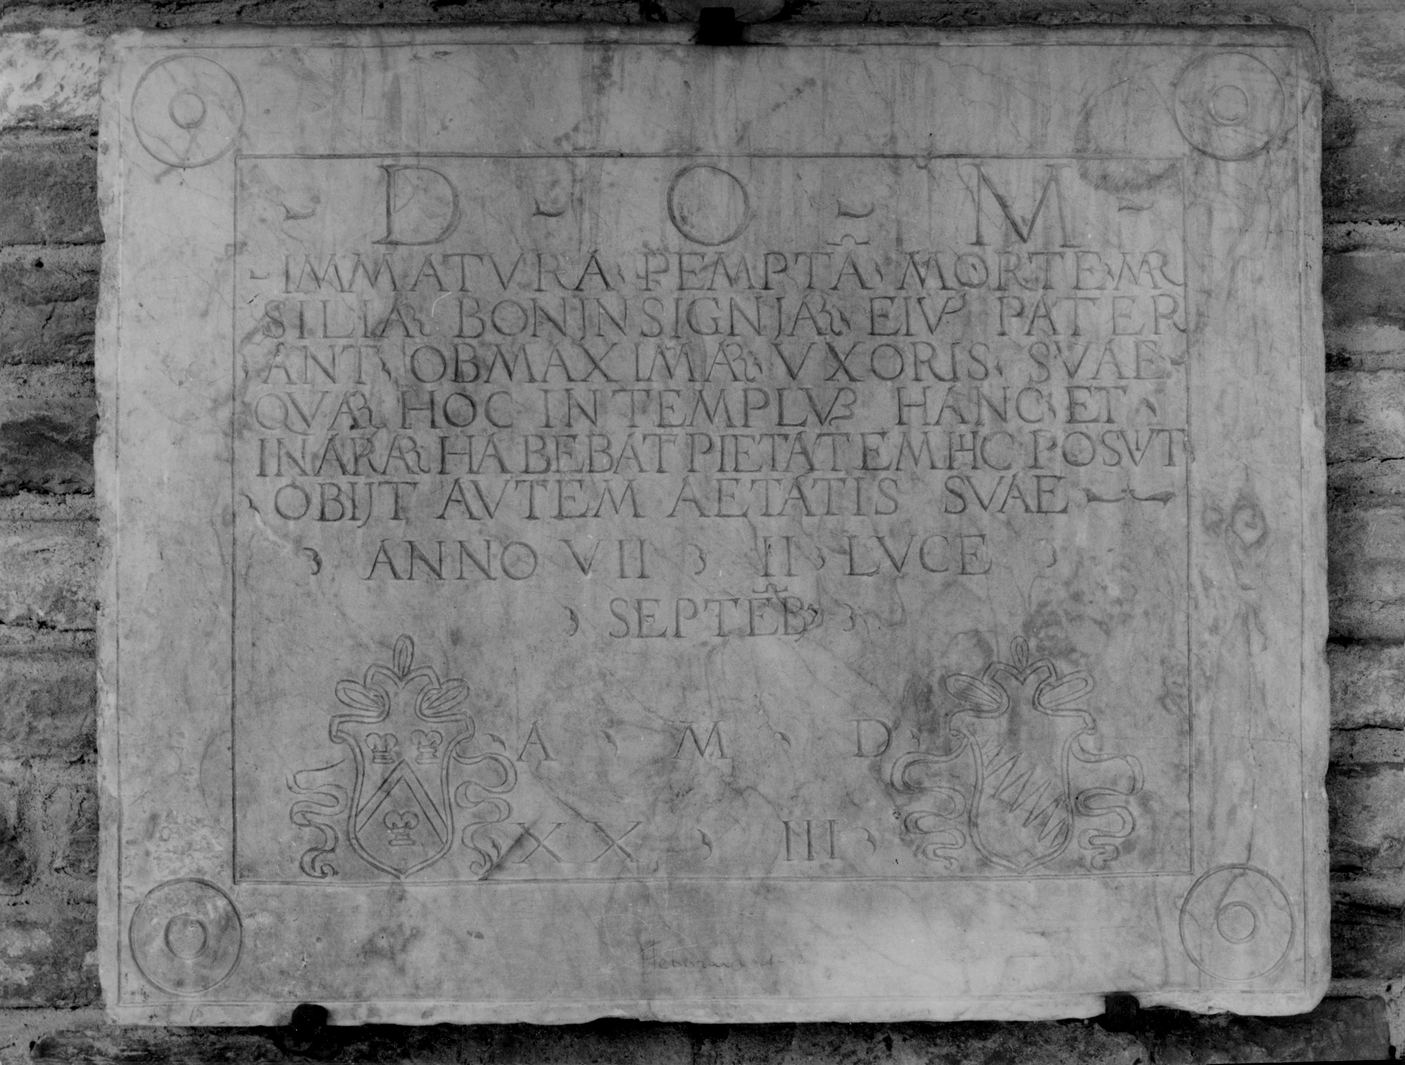 D O M
IMMATVRA PEMPTA MORTE MR
SILIA BONINSIGNIA EIVS PATER
ANT OB MAXIMA VXORIS SVAE
QVA HOC IN TEMPLVM HANC ET
IN ARA HABEBAT PIETATEM HIC POSVIT
OBIJT AVTEM AETATIS SVAE
ANNO VII II LVCE
SEPTEB
A M D
XX III